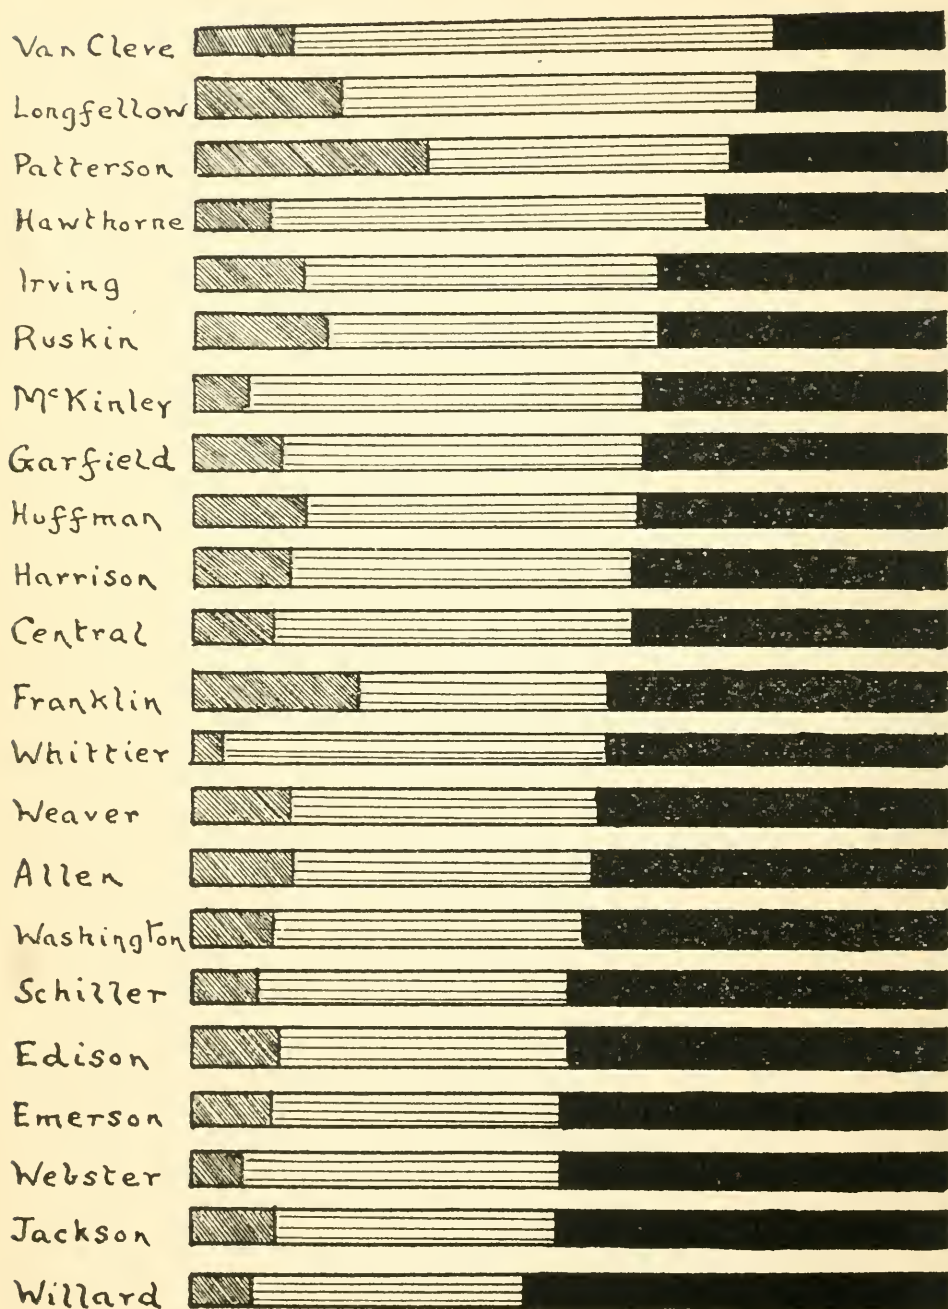 Van Cleve
Longfellow
Patterson
Hawthorne
Irving
Ruskin
McKinley
Garfield
Huffman
Harrison
Central
Franklin
Whittier
Weaver
Allen
Washington
Schiller
Edison
Emerson
Webster
Jackson
Willard